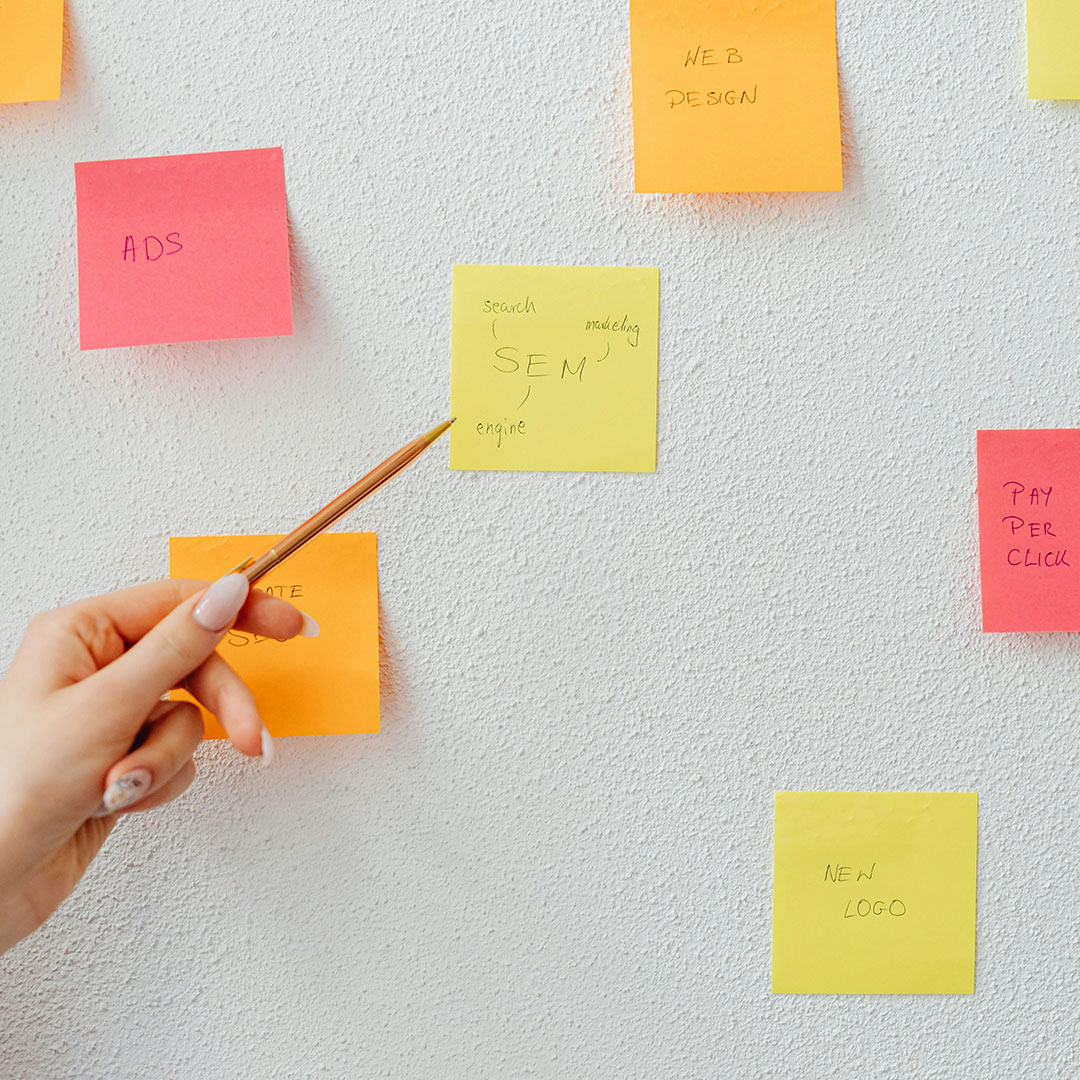 WEB
DESIGN
ADS
search
marketing
SEM
engine
PAY
PER
CLICK
NEW
LOGO